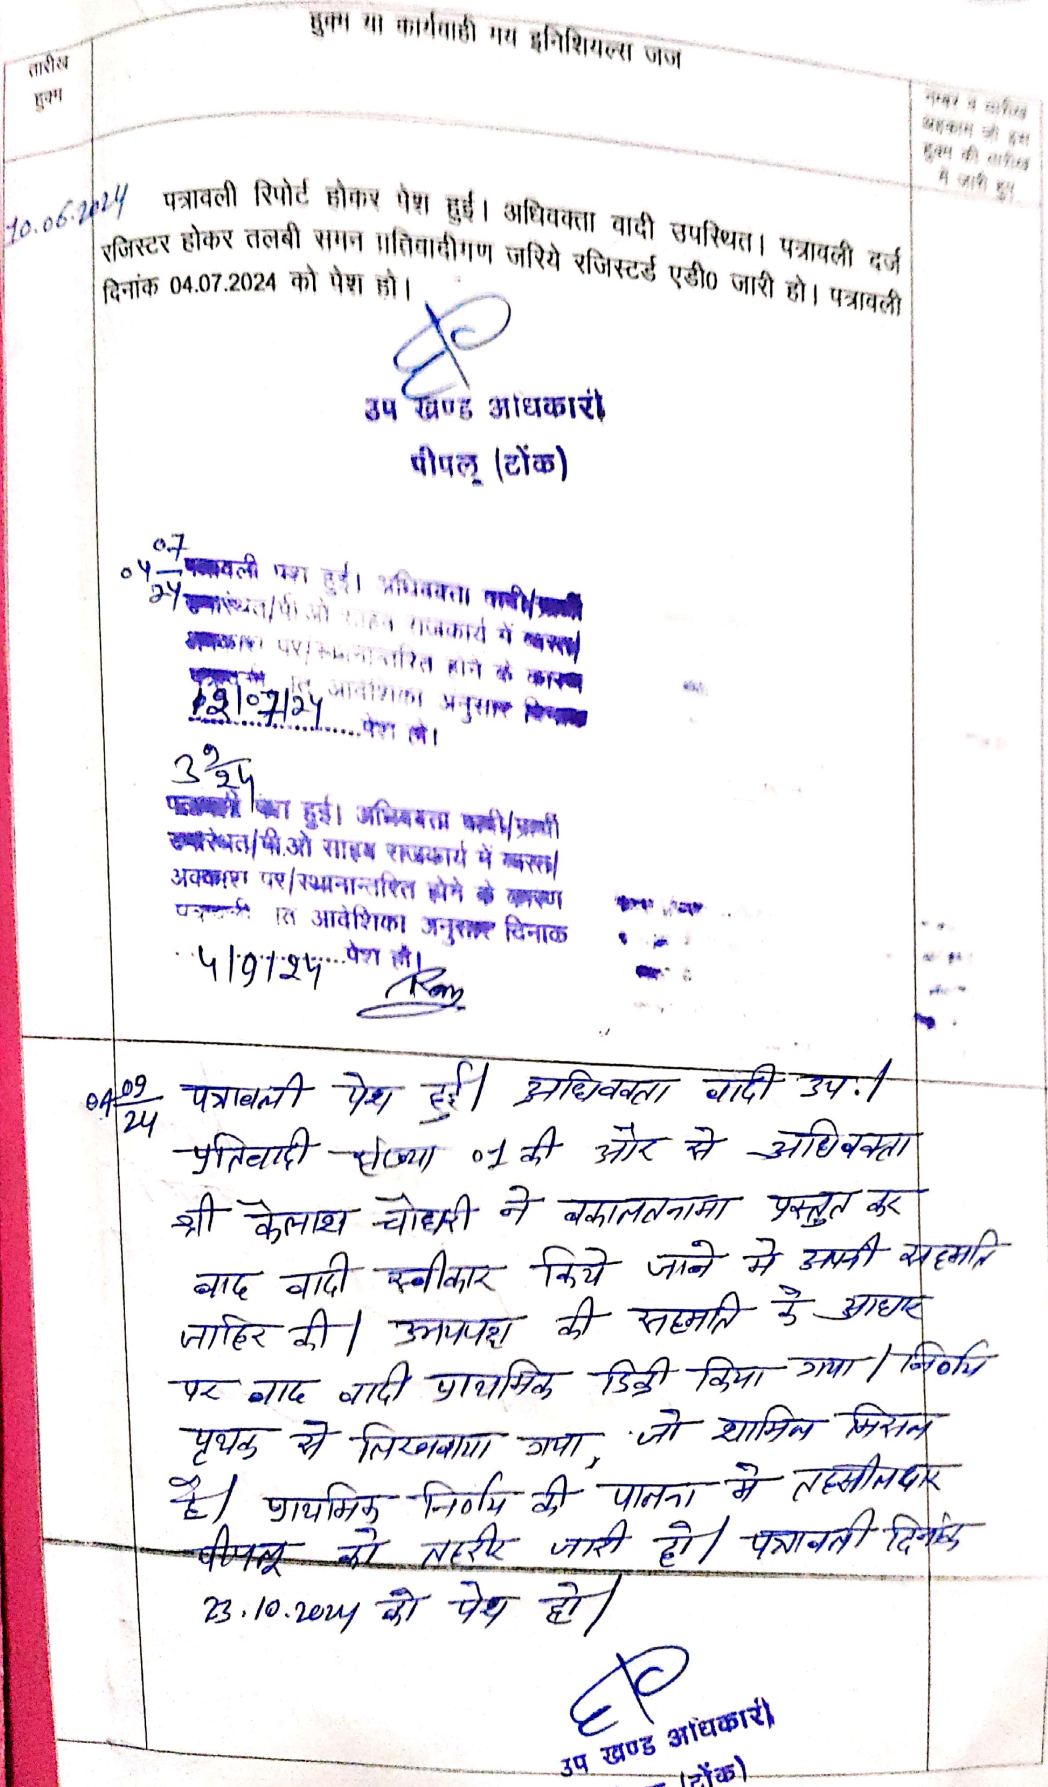 हुक्म या कार्यवाही मय इनिशियल्स जज
तारीख
हुक्म
नम्बर व तारीख
अहकाम जो इस
हुक्म की तारीख
में जारी हुए
10.06.2024
पत्रावली रिपोर्ट होकर पेश हुई। अधिवक्ता वादी उपस्थित। पत्रावली दर्ज
रजिस्टर होकर तलबी समन प्रतिवादीगण जरिये रजिस्टर्ड एडी० जारी हो। पत्रावली
दिनांक 04.07.2024 को पेश हो।
उप खण्ड अधिकारी
पीपलू (टोंक)
04 07/24
पत्रावली पेश हुई। अधिवक्ता वादी/प्रार्थी
उपस्थित/पी.ओ साहब राजकार्य में व्यस्त/
अवकाश पर/स्थानान्तरित होने के कारण
आदेशिका अनुसार दिनांक
/07/24 पेश हो।
3 9/24
पत्रावली पेश हुई। अभिवक्ता वादी/प्रार्थी
उपस्थित/पी.ओ साहब राजकार्य में व्यस्त/
अवकाश पर/स्थानान्तरित होने के कारण
पत्रावली आदेशिका अनुसार दिनाक
4/9/24 पेश हो।
04 09/24
पत्रावली पेश हुई। अधिवक्ता वादी उप.।
प्रतिवादी संख्या 01 की और से अधिवक्ता
श्री कैलाश चौधरी ने वकालतनामा प्रस्तुत कर
वाद वादी स्वीकार किये जाने में अपनी सहमति
जाहिर की। उभयपक्ष की सहमति के आधार
पर वाद वादी प्राथमिक डिक्री किया गया। निर्णय
पृथक से लिखवाया गया, जो शामिल मिसल
है। प्राथमिक निर्णय की पालना में तहसीलदार
पीपलू को तहरीर जारी हो। पत्रावली दिनांक
23.10.2024 को पेश हो।
उप खण्ड अधिकारी
(टोंक)